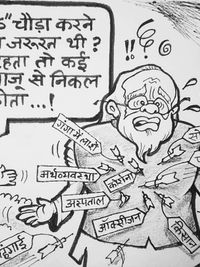 " चौड़ा करने
जरूरत थी ?
तो कई
से निकल
...!
!! ?
गंगा में लाशें
अर्थव्यवस्था
कोरोना
अस्पताल
ऑक्सीजन
किसान